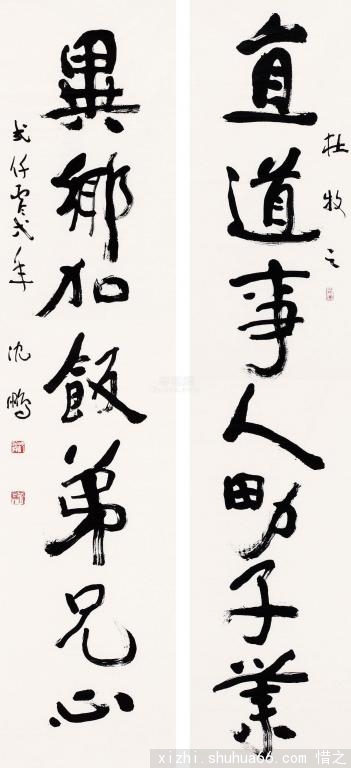 杜牧之
直道事人男子業
異鄉加飯弟兄心
弍仟零弍年 沈鵬
xizhi.shuhua66.com 惜之